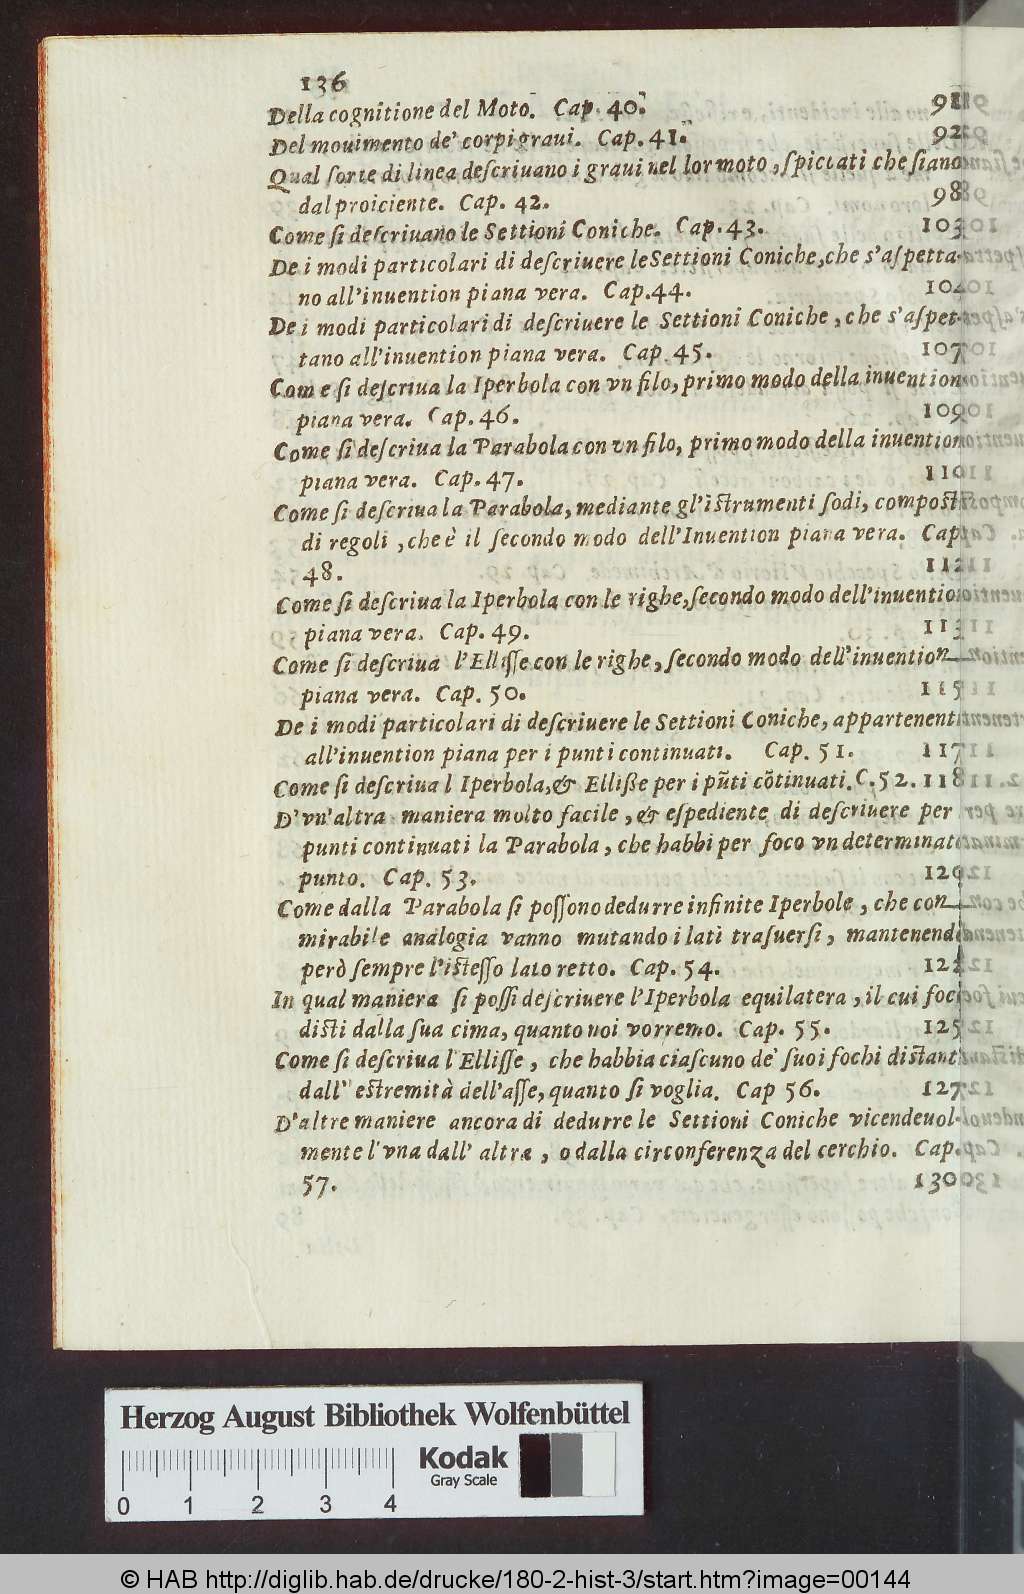 136
Della cognitione del Moto. Cap. 40. 91
Del mouimento de' corpi graui. Cap. 41. 92
Qual sorte di linea descriuano i graui nel lor moto, spiccati che siano
dal proiciente. Cap. 42. 98
Come si descriuano le Settioni Coniche. Cap. 43. 103
De i modi particolari di descriuere le Settioni Coniche, che s'aspetta-
no all'inuention piana vera. Cap. 44. 104
De i modi particolari di descriuere le Settioni Coniche, che s'aspet-
tano all'inuention piana vera. Cap. 45. 107
Come si descriua la Iperbola con vn filo, primo modo della inuention
piana vera. Cap. 46. 109
Come si descriua la Parabola con vn filo, primo modo della inuention
piana vera. Cap. 47. 110
Come si descriua la Parabola, mediante gl'istrumenti sodi, composti
di regoli, che è il secondo modo dell'Inuention piana vera. Cap.
48. 112
Come si descriua la Iperbola con le righe, secondo modo dell'inuentio
piana vera. Cap. 49. 113
Come si descriua l'Ellisse con le righe, secondo modo dell'inuention
piana vera. Cap. 50. 115
De i modi particolari di descriuere le Settioni Coniche, appartenenti
all'inuention piana per i punti continuati. Cap. 51. 117
Come si descriua l Iperbola, & Ellisse per i pũti cõtinuati. C. 52. 118
D'vn'altra maniera molto facile, & espediente di descriuere per
punti continuati la Parabola, che habbi per foco vn determinato
punto. Cap. 53. 120
Come dalla Parabola si possono dedurre infinite Iperbole, che con
mirabile analogia vanno mutando i lati trasuersi, mantenendo
però sempre l'istesso lato retto. Cap. 54. 122
In qual maniera si possi descriuere l'Iperbola equilatera, il cui foco
disti dalla sua cima, quanto noi vorremo. Cap. 55. 125
Come si descriua l'Ellisse, che habbia ciascuno de' suoi fochi distanti
dall' estremità dell'asse, quanto si voglia. Cap 56. 127
D'altre maniere ancora di dedurre le Settioni Coniche vicendeuol-
mente l'vna dall' altra, o dalla circonferenza del cerchio. Cap.
57. 130
Herzog August Bibliothek Wolfenbüttel
Kodak
Gray Scale
0 1 2 3 4
© HAB http://diglib.hab.de/drucke/180-2-hist-3/start.htm?image=00144